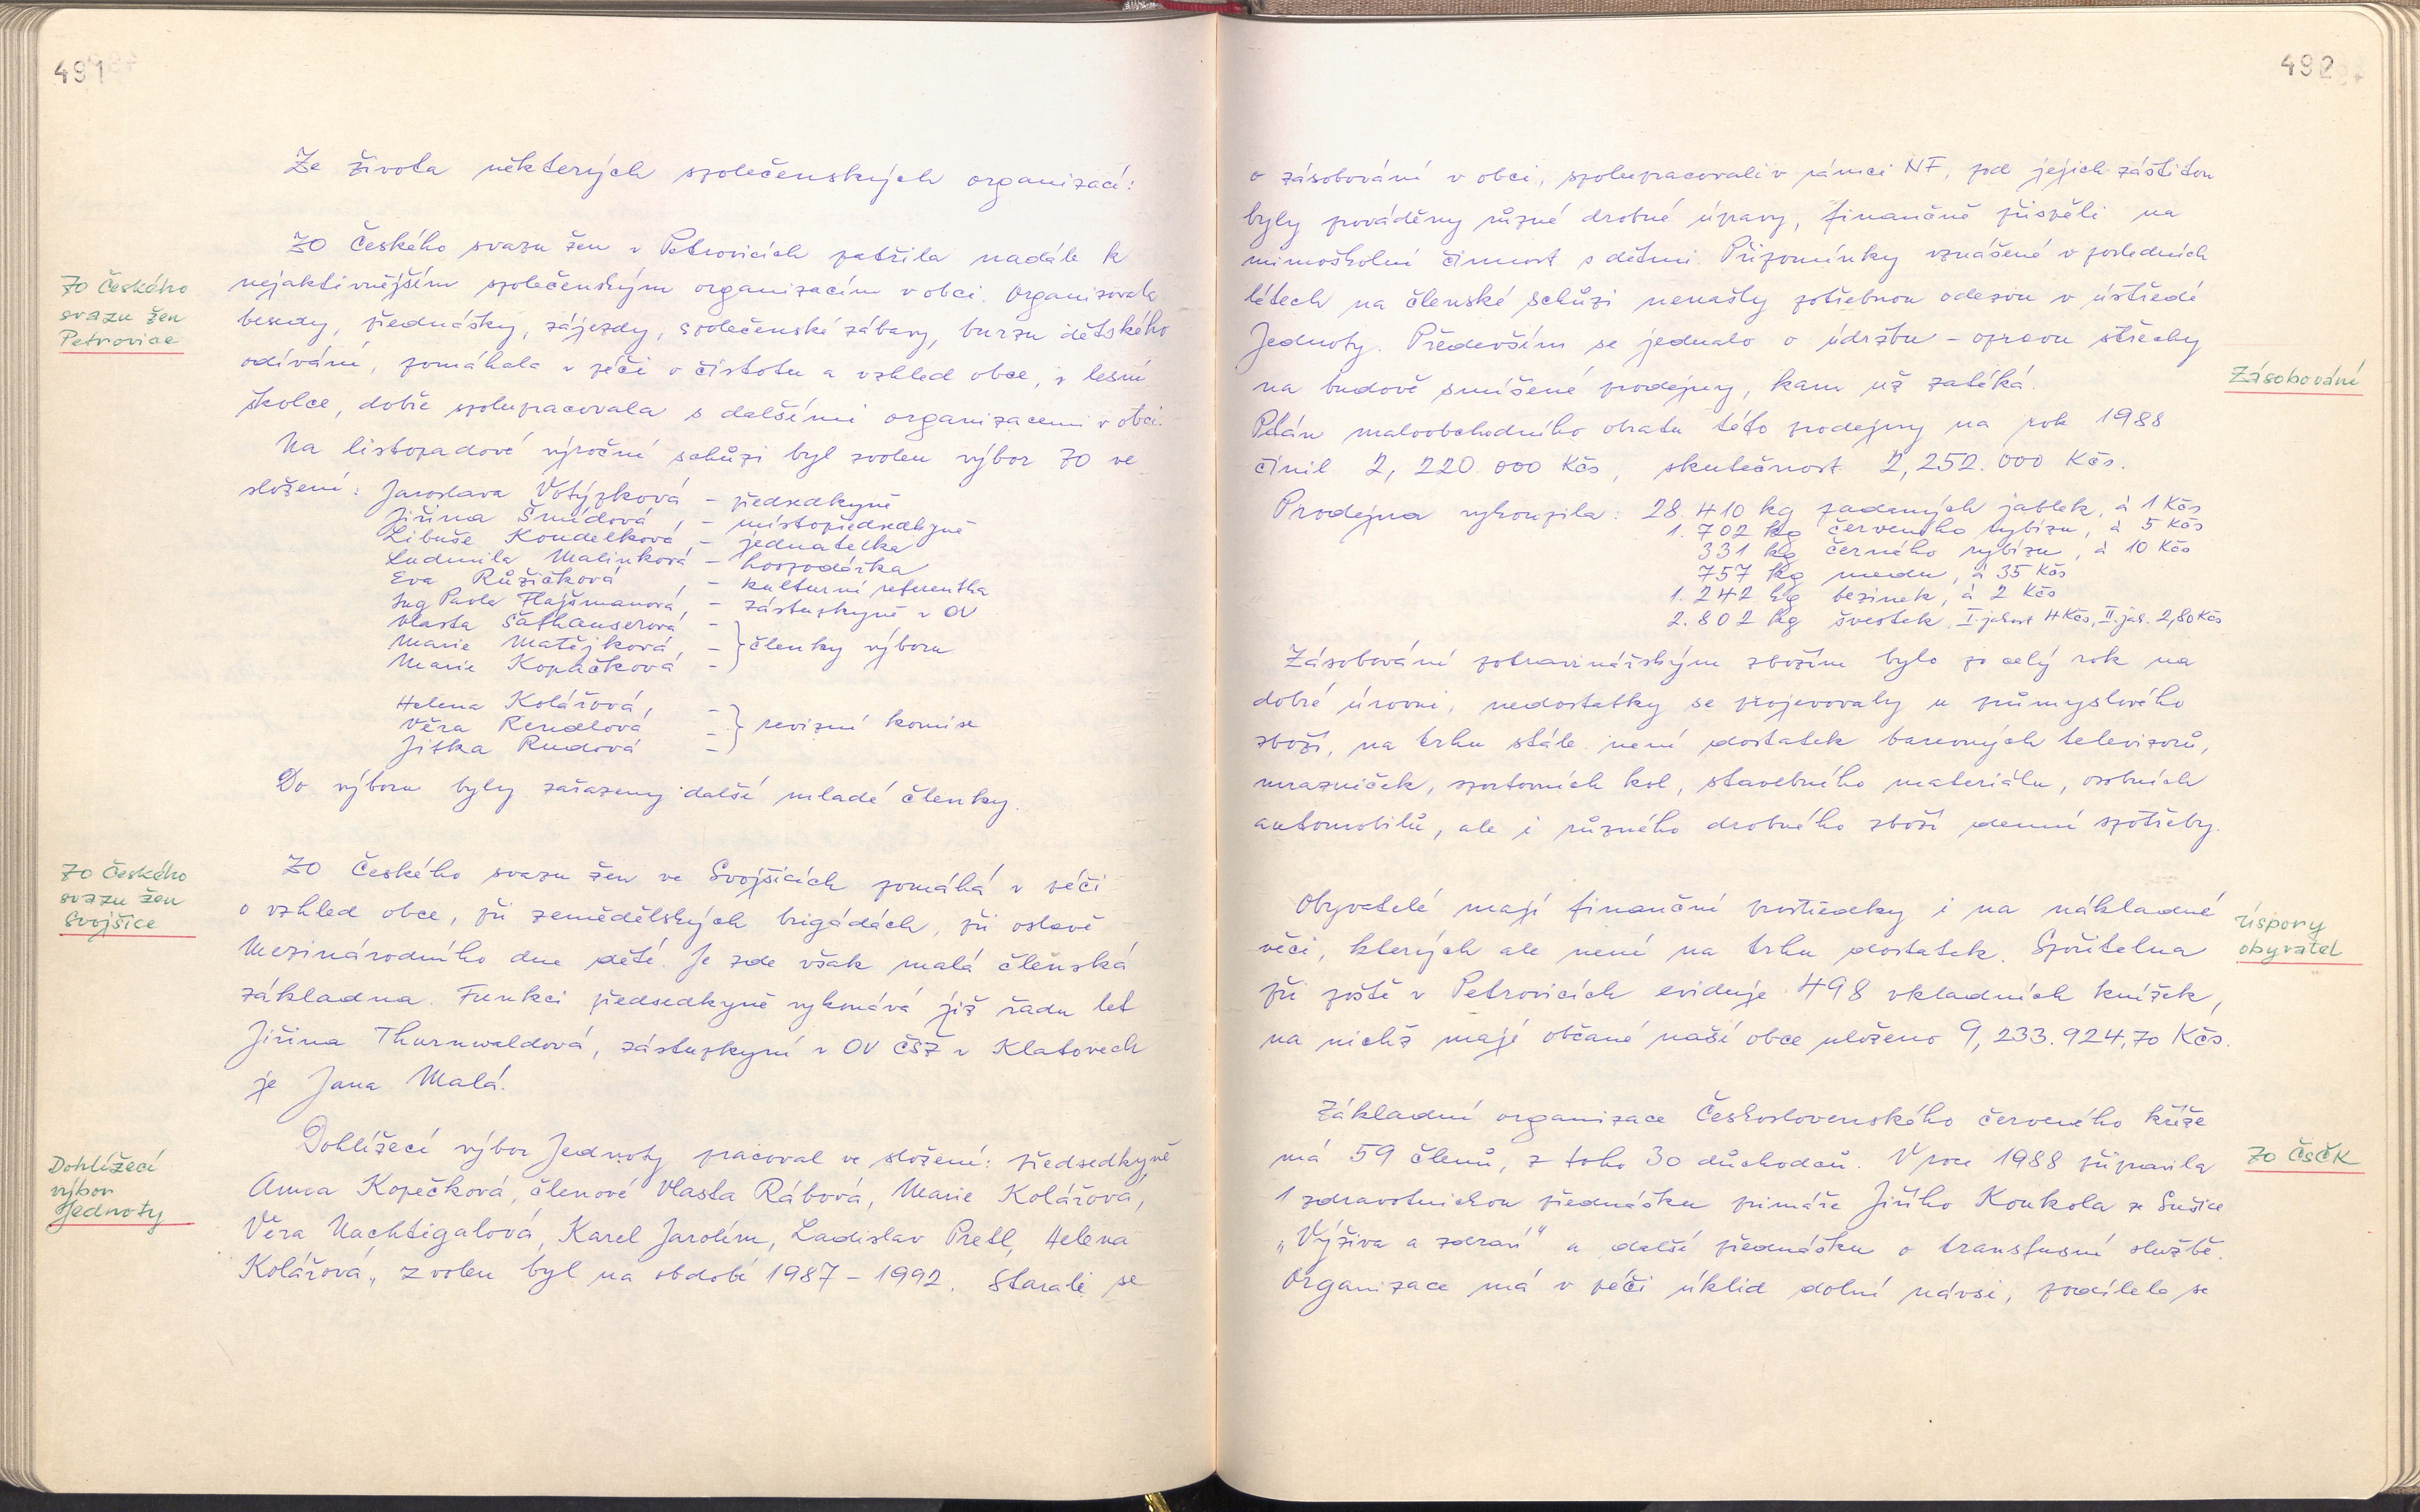 491
Ze života některých společenských organizací:
ZO Českého svazu žen v Petrovicích patřila nadále k
nejaktivnějším společenským organizacím v obci. Organizovala
besedy, přednášky, zájezdy, společenské zábavy, burzu dětského
odívání, pomáhala v péči o čistotu a vzhled obce, v lesní
školce, dobře spolupracovala s dalšími organizacemi v obci.
ZO Českého
svazu žen
Petrovice
Na listopadové výroční schůzi byl zvolen výbor ZO ve
složení: Jaroslava Votýpková - předsedkyně
Jiřina Šmídová, - místopředsedkyně
Libuše Koudelková - jednatelka
Ludmila Malinková - hospodářka
Eva Růžičková, - kulturní referentka
Ing Pavla Flajšmanová, - zástupkyně v OV
Vlasta Šafhauserová -
Marie Matějková, - } členky výboru
Marie Kopáčková -
Helena Kolářová, -
Věra Rendlová - } revizní komise
Jitka Rudová -
Do výboru byly zařazeny další mladé členky.
ZO Českého
svazu žen
Svojšice
ZO Českého svazu žen ve Svojšicích pomáhá v péči
o vzhled obce, při zemědělských brigádách, při oslavě
Mezinárodního dne dětí. Je zde však malá členská
základna. Funkci předsedkyně vykonává již řadu let
Jiřina Thurnwaldová, zástupkyní v OV ČSŽ v Klatovech
je Jana Malá.
Dohlížecí
výbor
Jednoty
Dohlížecí výbor Jednoty pracoval ve složení: předsedkyně
Anna Kopečková, členové Vlasta Rábová, Marie Kolářová,
Věra Nachtigalová, Karel Jarolím, Ladislav Pretl, Helena
Kolářová, zvolen byl na období 1987 - 1992. Starali se
492
o zásobování v obci, spolupracovali v rámci NF, pod jejich záštitou
byly prováděny různé drobné úpravy, finančně přispěli na
mimoškolní činnost s dětmi. Připomínky vznášené v posledních
létech na členské schůzi nenašly potřebnou odezvu v ústředí
Jednoty. Především se jednalo o údržbu - opravu střechy
na budově smíšené prodejny, kam už zatéká.
Zásobování
Plán maloobchodního obratu této prodejny na rok 1988
činil 2,220.000 Kčs, skutečnost 2,252.000 Kčs.
Prodejna vykoupila: 28.410 kg padaných jablek, à 1 Kčs
1.702 kg červeného rybízu, à 5 Kčs
331 kg černého rybízu, à 10 Kčs
757 kg medu, à 35 Kčs
1.242 kg bezinek, à 2 Kčs
2.802 kg švestek, I. jakost 4 Kčs, II. jak. 2,80 Kčs
Zásobování potravinářským zbožím bylo po celý rok na
dobré úrovni, nedostatky se projevovaly u průmyslového
zboží, na trhu stále není dostatek barevných televizorů,
mrazniček, sportovních kol, stavebního materiálu, osobních
automobilů, ale i různého drobného zboží denní spotřeby.
Obyvatelé mají finanční prostředky i na nákladné
věci, kterých ale není na trhu dostatek. Spořitelna
při poště v Petrovicích eviduje 498 vkladních knížek,
na nichž mají občané naší obce uloženo 9,233.924,70 Kčs.
Úspory
obyvatel
Základní organizace Československého červeného kříže
má 59 členů, z toho 30 důchodců. V roce 1988 připravila
1 zdravotnickou přednášku primáře Jiřího Koukola ze Sušice
„Výživa a zdraví“ a další přednášku o transfusní službě.
Organizace má v péči úklid dolní návsi, podílela se
ZO ČsČK